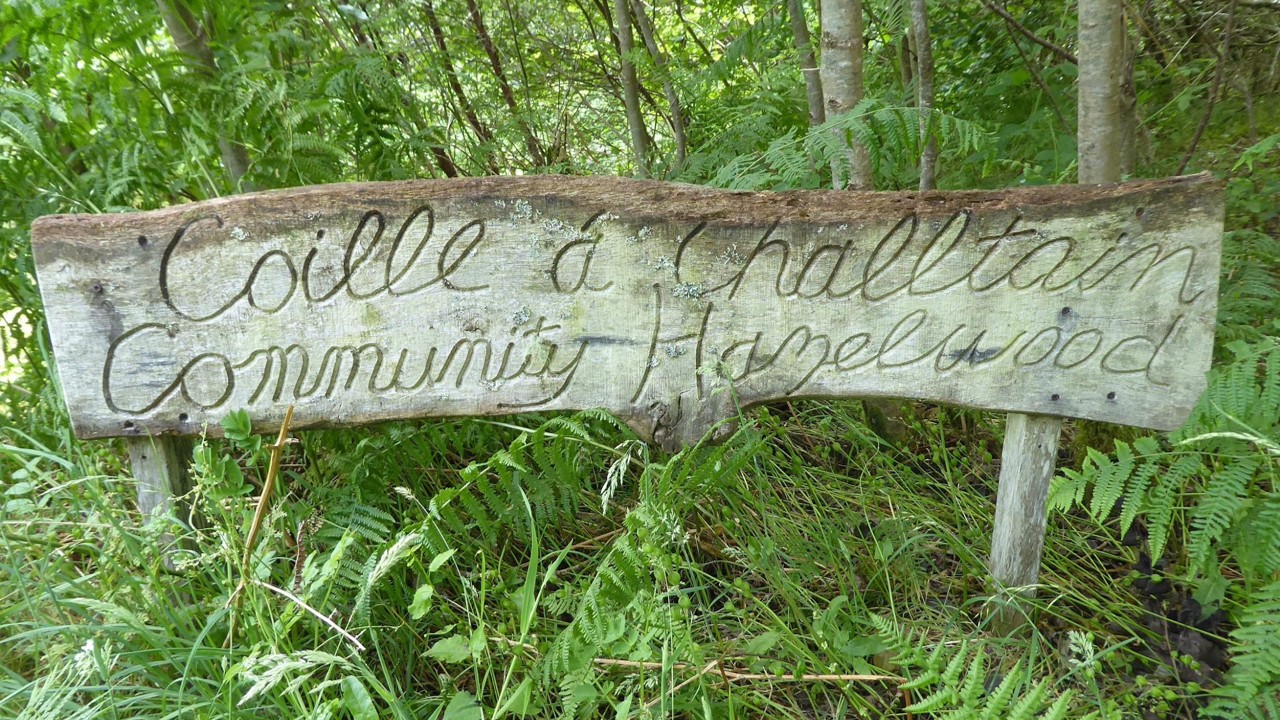 Coille á Challtain
Community Hazelwood